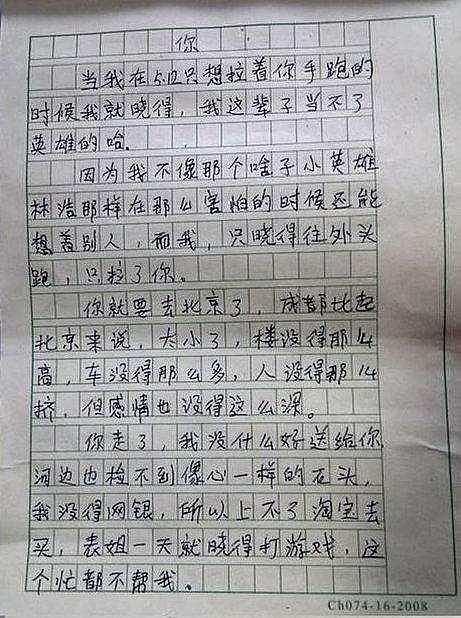 你
当我在5.12只想拉着你手跑的
时候我就晓得，我这辈子当不了
英雄的哈.
因为我不像那个啥子小英雄
林浩那样在那么害怕的时候还能
想着别人，而我，只晓得往外头
跑，只拉了你。
你就要去北京了，成都比起
北京来说，太小了，楼没得那么
高，车没得那么多，人没得那么
挤，但感情也没得这么深。
你走了，我没什么好送给你
河边也捡不到像心一样的石头，
我没得网银，所以上不了淘宝去
买，表姐一天就晓得打游戏，这
个忙都不帮我。
Ch074-16-2008